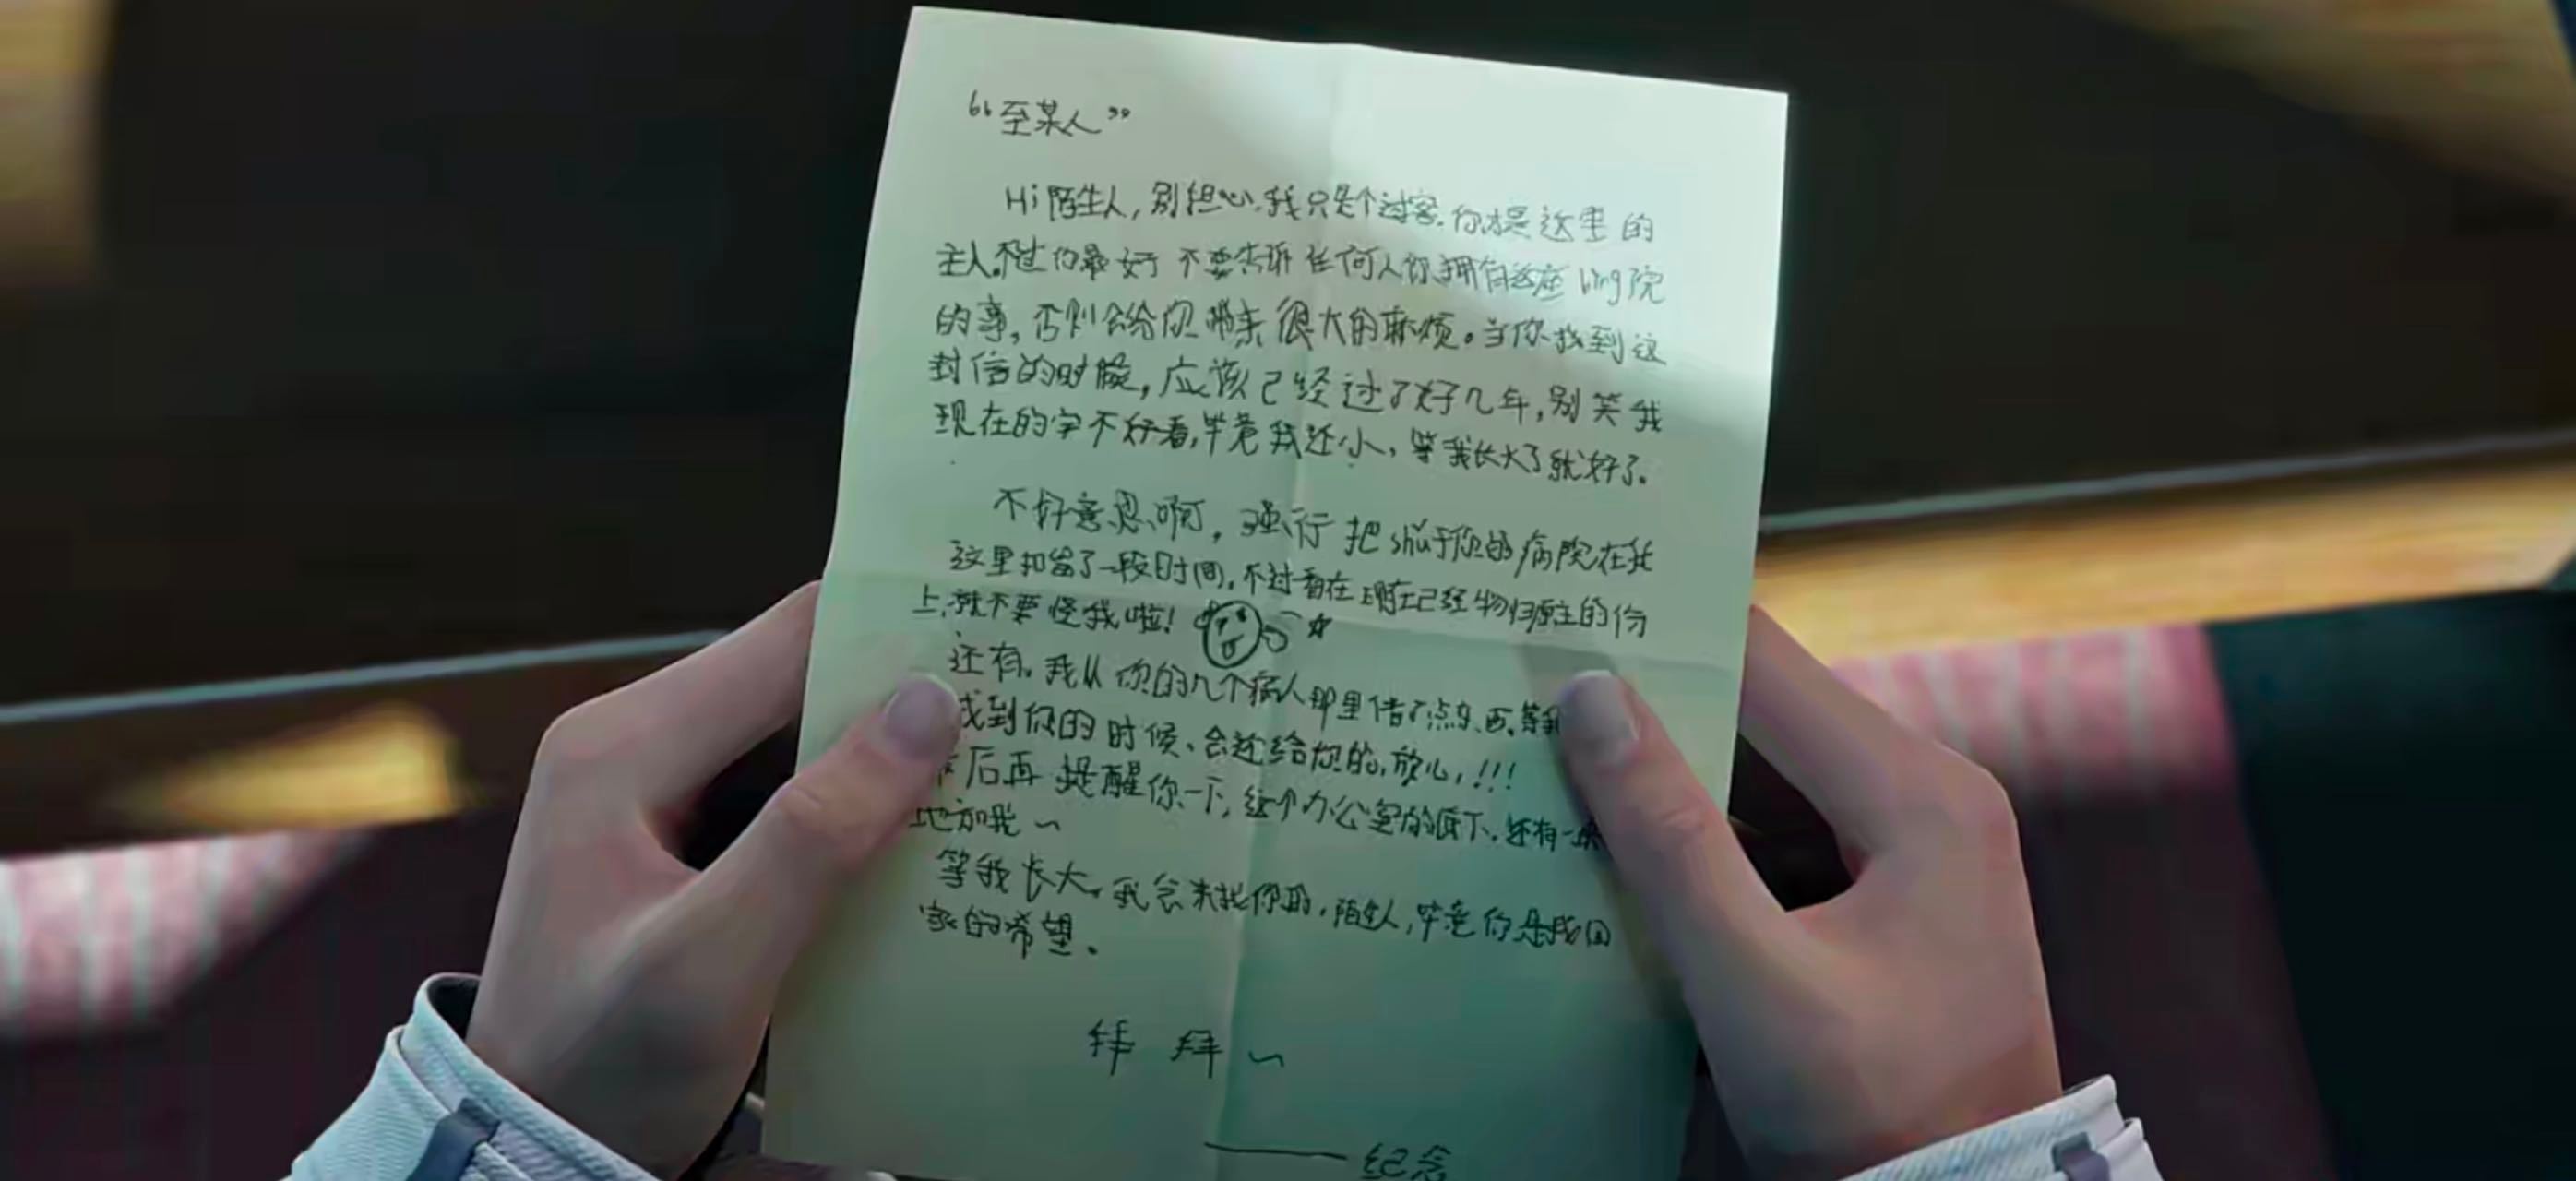 “至某人”
Hi陌生人，别担心，我只是个过客，你才是这里的
主人。不过你最好不要告诉任何人你拥有这座bing院
的事，否则会给你带来很大的麻烦。当你找到这
封信的时候，应该已经过了好几年，别笑我
现在的字不好看，毕竟我还小，等我长大了就好了。
不好意思啊，强行把shǔ于你的病院在我
这里扣留了一段时间，不过看在现在已经物归原主的份
上，就不要怪我啦！
还有，我从你的几个病人那里借了点东西，等我
找到你的时候，会还给你的，放心，!!!
后再提醒你一下，这个办公室的底下，还有一
地方哦～
等我长大，我会来找你的，陌生人，毕竟你是我回
家的希望。
拜 拜～
——纪念